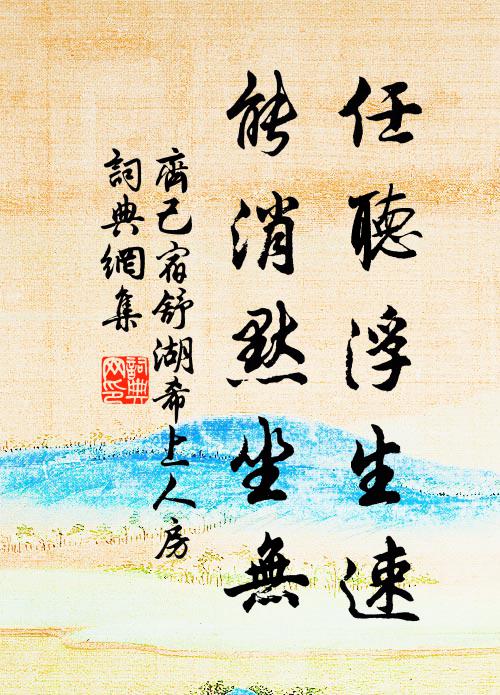 任聽浮生速
能消默坐無
齊己宿舒湖希上人房
詞典網集
詞典網印